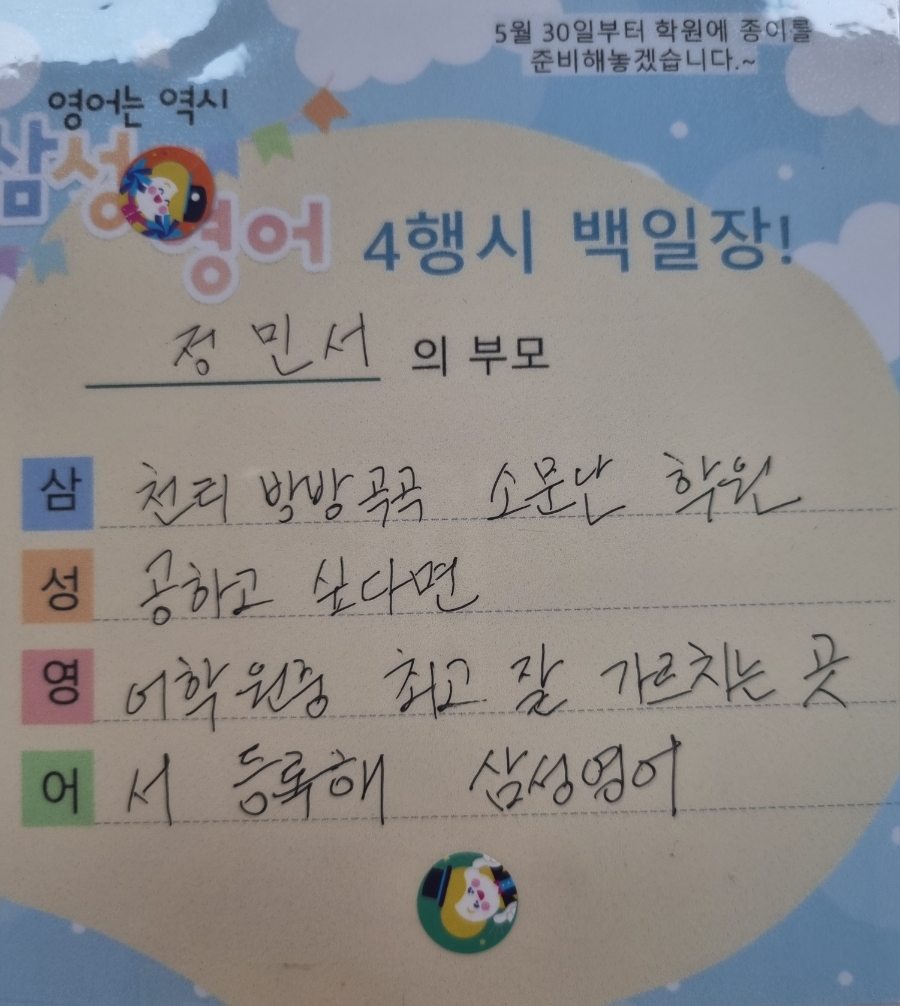 5월 30일부터 학원에 종이를
준비해놓겠습니다.~
영어는 역시
삼성
영어 4행시 백일장!
정민서 의 부모
삼 천리 방방곡곡 소문난 학원
성 공하고 싶다면
영 어학원중 최고 잘 가르치는 곳
어 서 등록해 삼성영어